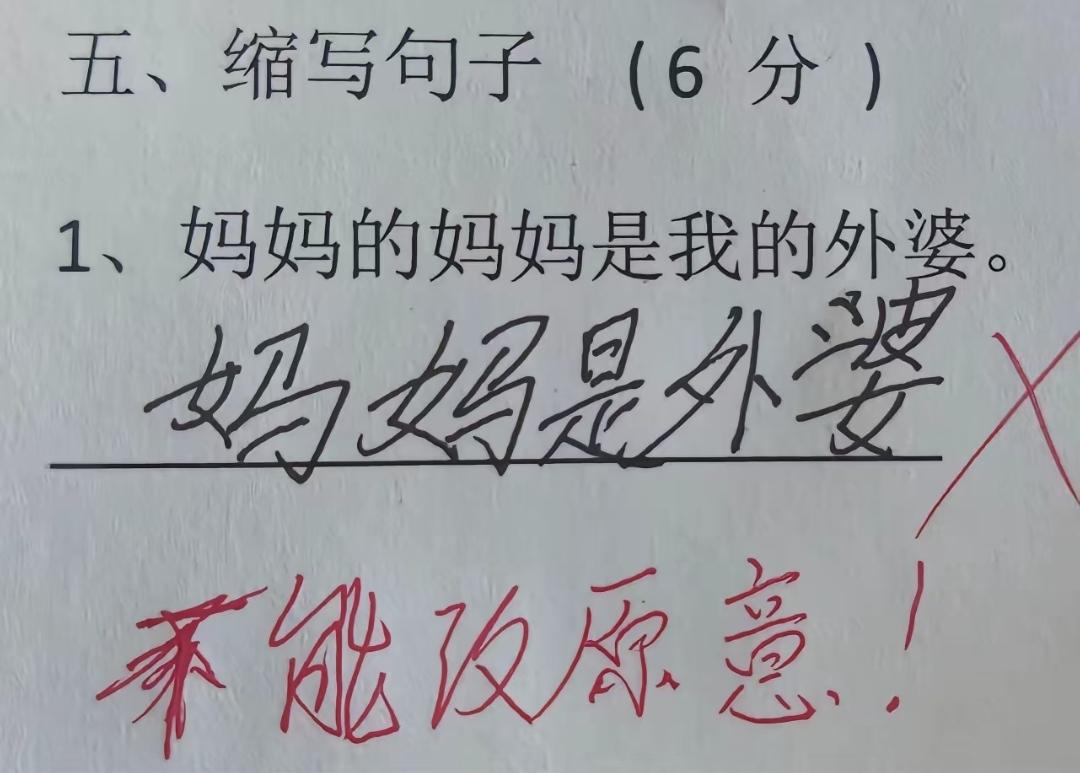 五、缩写句子 (6 分)
1、妈妈的妈妈是我的外婆。
妈妈是外婆
不能改原意！